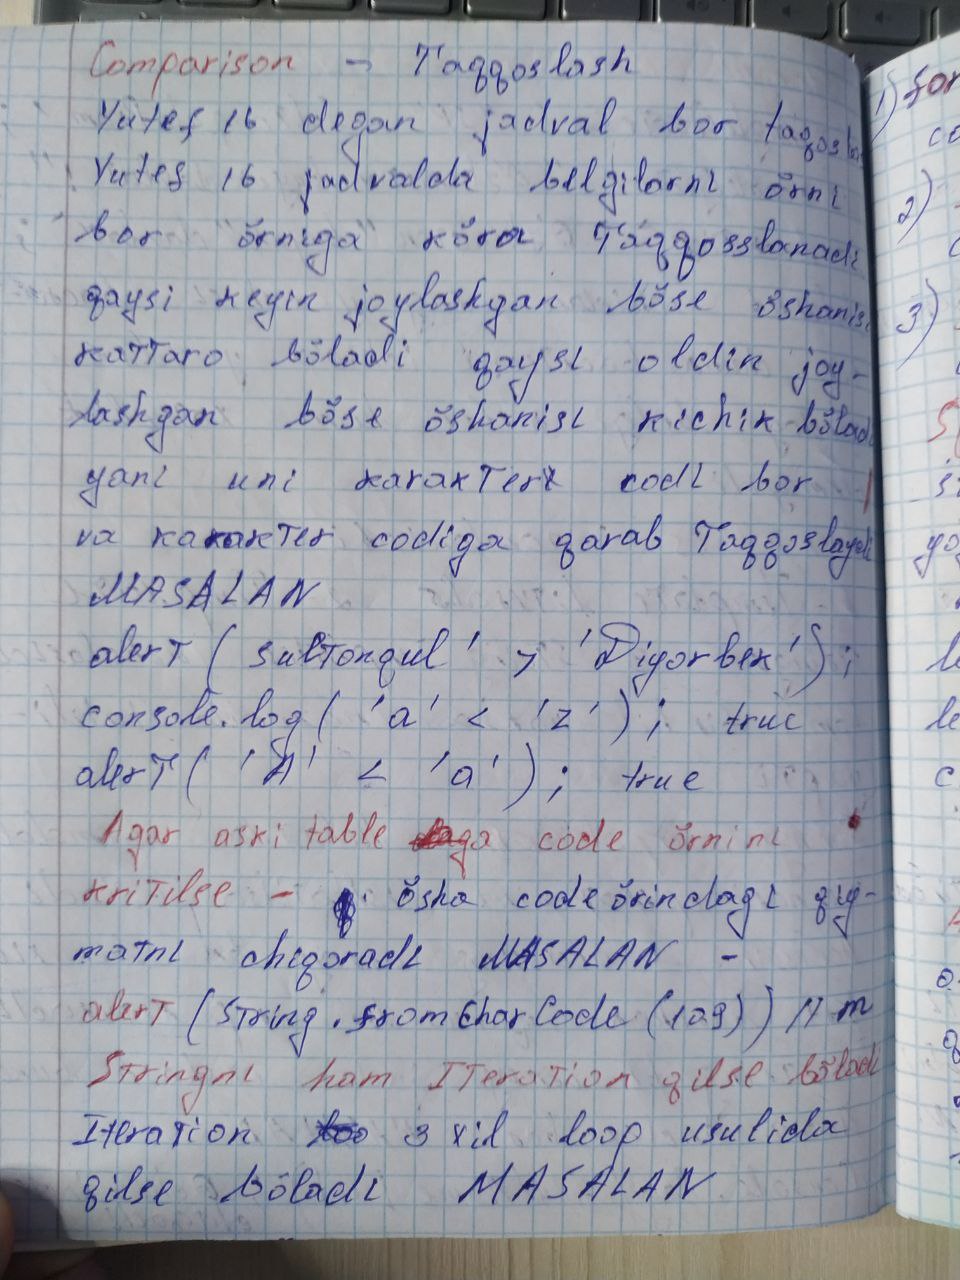 Comparison - Taqqoslash
Yutef 16 degan jadval bor taqosla
Yutef 16 jadvalda belgilarni õrni
bor õrniga kõra Taqqosslanadi
qaysi keyin joylashgan bõse õshanisi
kattaro bõladi qaysi oldin joy-
lashgan bõse õshanisi kichik bõladi
yani uni karakteri codi bor
va karakter codiga qarab Taqqoslaydi
MASALAN
alert ( Sultonqul' > 'Diyorbek') ;
console.log ( 'a' < 'z' ) ; true
alert ( 'A' < 'a' ) ; true
Agar aski table ga code õrnini
kritilse - õsha code õrindagi qiy-
matni chiqoradi MASALAN -
alert (String.fromCharCode (109)) // m
Stringni ham Iteration qilse bõladi
Iteration 3 xil loop usulida
qilse bõladi MASALAN
1) for
2)
3)